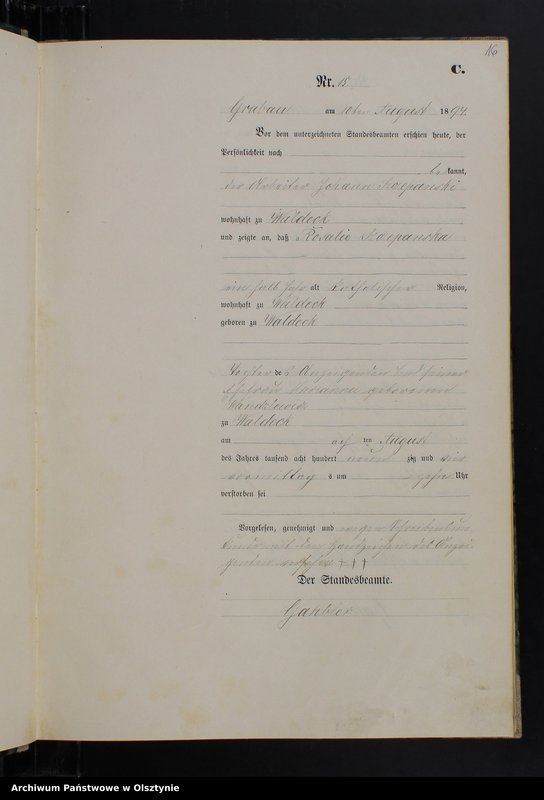 16
C.
Nr. 15
Grabau am 10ten August 1894.
Vor dem unterzeichneten Standesbeamten erschien heute, der
Persönlichkeit nach
be kannt,
der Arbeiter Johann Szczepanski
wohnhaft zu Waldeck
und zeigte an, daß Rosalie Szczepanska
ein halb Jahr alt katholischer Religion,
wohnhaft zu Waldeck
geboren zu Waldeck
Tochter des Anzeigenden und seiner
Ehefrau Marianna geborenen
zu Waldeck
am acht ten August
des Jahres tausend acht hundert neun zig und vier
vormittag s um zehn Uhr
verstorben sei
Vorgelesen, genehmigt und wegen Schreibens un
kunde mit den Handzeichen des Anzei
genden versehen +++
Der Standesbeamte.
Archiwum Państwowe w Olsztynie